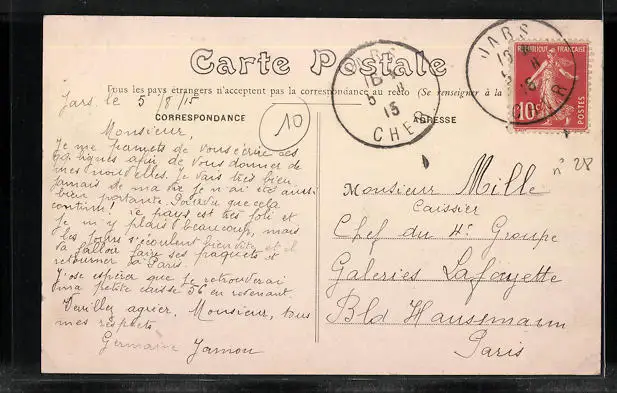 Carte Postale
Tous les pays étrangers n'acceptent pas la correspondance au recto (Se renseigner à la
CORRESPONDANCE
ADRESSE
JARS
5 8
15
CHER
JARS
REPUBLIQUE FRANÇAISE
10c
POSTES
10
n° 28
Jars, le 5/8/15
Monsieur,
Je me permets de vous écrire ces
lignes afin de vous donner de
mes nouvelles. Je vais très bien
jamais de ma vie je n'ai été aussi
bien portante. Pourvu que cela
continu! Le pays est très joli et
je m'y plais beaucoup, mais
les jours s'écoulent bien vite et il
va falloir faire ses paquets et
retourner à Paris.
J'ose espérer que je retrouverai
ma petite caisse 56 en revenant.
Veuillez agréer, Monsieur, tous
mes respects.
Germaine Jamou
Monsieur Mille
Caissier
Chef du 4e Groupe
Galeries Lafayette
Bld Haussmann
Paris